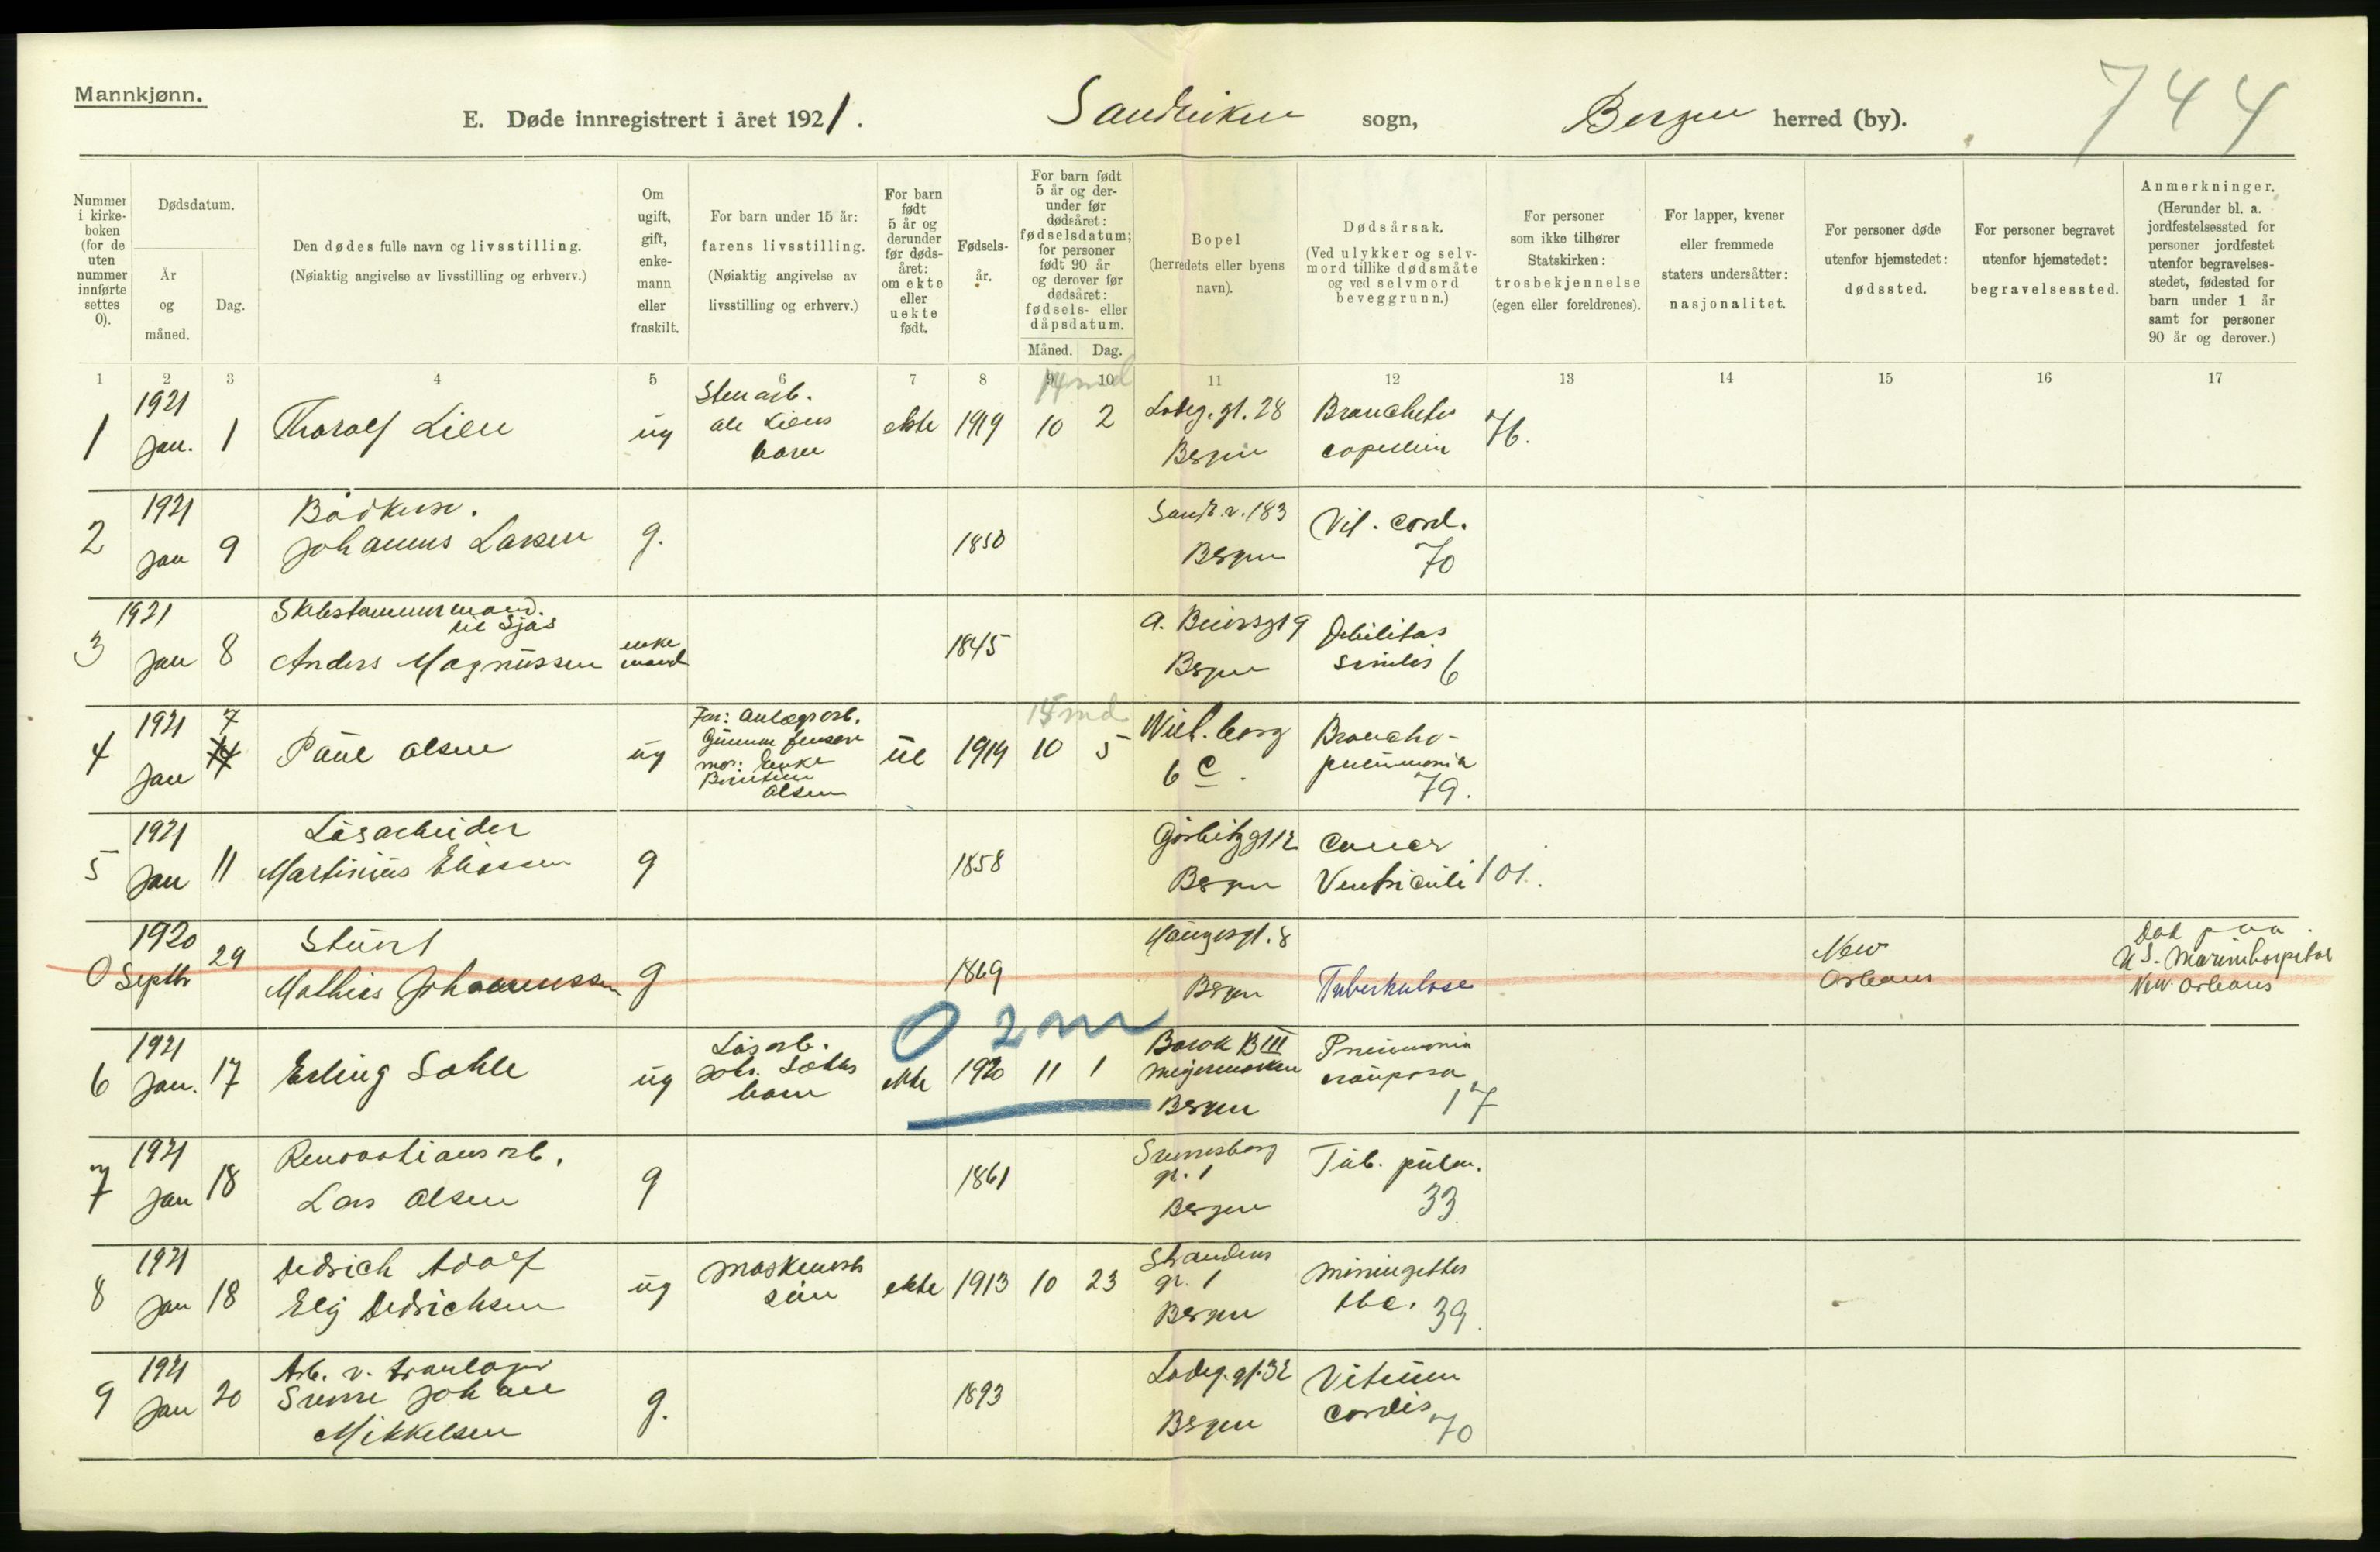 Mannkjønn.
E. Døde innregistrert i året 1921.
Sandviken sogn,
Bergen herred (by).
744
Nummer i kirke-boken (for de uten nummer innførte settes 0).
Dødsdatum.
År og måned.
Dag.
Den dødes fulle navn og livsstilling.
(Nøiaktig angivelse av livsstilling og erhverv.)
Om ugift, gift, enke-mann eller fraskilt.
For barn under 15 år:
farens livsstilling.
(Nøiaktig angivelse av livsstilling og erhverv.)
For barn født 5 år og derunder før døds-året: om ekte eller uekte født.
Fødsels-år.
For barn født 5 år og der-under før dødsåret: fødselsdatum; for personer født 90 år og derover før dødsåret: fødsels- eller dåpsdatum.
Måned. Dag.
Bopel
(herredets eller byens navn).
Dødsårsak.
(Ved ulykker og selv-mord tillike dødsmåte og ved selvmord beveggrunn.)
For personer som ikke tilhører Statskirken: trosbekjennelse (egen eller foreldrenes).
For lapper, kvener eller fremmede staters undersåtter: nasjonalitet.
For personer døde utenfor hjemstedet: dødssted.
For personer begravet utenfor hjemstedet: begravelsessted.
Anmerkninger.
(Herunder bl. a. jordfestelsessted for personer jordfestet utenfor begravelses-stedet, fødested for barn under 1 år samt for personer 90 år og derover.)
1 2 3 4 5 6 7 8 9 10 11 12 13 14 15 16 17
14 md
1 1921 Jan. 1 Thoralf Lien ug Stenarb. Ole Liens barn ekte 1919 10 2 Lodeg. gt. 28 Bergen 76.
2 1921 Jan 9 Bødker. Johannes Larsen g. 1850 Sandv. v. 183 Bergen Vit. cord. 70
3 1921 Jan 8 Skibstømmermand. til Sjøs
Anders Magnussen enke mand 1845 Bergen Debilitas senilis 6
4 1921 Jan 7 Paul Olsen ug Far: Anlægsarb. Gunnar Jensen mor: Enke Olsen ue 1919 10 5 6 C. Broncho-pneumonia 79.
15 md
5 1921 Jan 11 Løsarbeider
Martinius Eliassen g 1858 Gørbitzgt 12 Bergen Cancer Ventriculi 101.
0 1920 Septbr 29 Stuert
Mathias Johannessen g 1869 Haugesgt. 8 Bergen Tuberkulose New Orleans Død paa U.S. Marinehospital New Orleans
0 2 m
6 1921 Jan. 17 Erling Sæhle ug Løsarb. Joh. Sæhles barn ekte 1920 11 1 Barak B III Meyermarken Bergen Pneumonia crouposa 17
7 1921 Jan 18 Renovationsarb.
Lars Olsen g 1861 gt. 1 Bergen Tub. pulm. 33
8 1921 Jan 18 Dedrich Adolf
Elij Dedrichsen ug Maskinarb søn ekte 1913 10 23 Strandens gt. 1 Bergen Meningittes tbc. 39.
9 1921 Jan 20 Arb. v. tranlager
Sverre Johan
Mikkelsen g. 1893 Lodeg. gt. 32 Bergen Vitium cordis 70